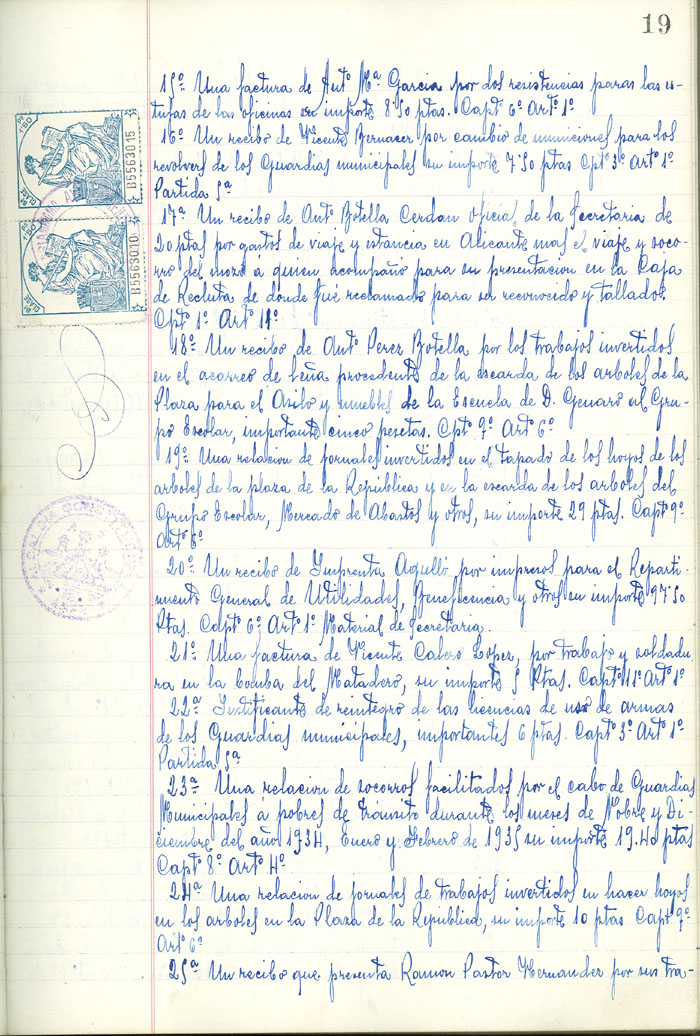 19
15º Una factura de Antº Mª Garcia por dos resistencias paras las es-
tufas de las oficinas su importe 8'50 ptas. Captº 6º Artº 1º
16º Un recibo de Vicente Bernacer por cambio de municiones para los
revolvers de los Guardias municipales su importe 7'50 ptas Cptº 3º Artº 1º
Partida 5ª
17ª Un recibo de Antº Botella Cerdan oficial de la Secretaria de
20 ptas por gastos de viaje y estancia en Alicante mas el viaje y soco-
rro del mozo á quien acompaño para su presentacion en la Caja
de Recluta de donde fué reclamado para ser reconocido y tallado.
Cptº 1º Artº 11º
18º Un recibo de Antº Perez Botella por los trabajos invertidos
en el acarreo de leña procedente de la escarda de los arboles de la
Plaza para el Asilo y muebles de la Escuela de D. Genaro al Gru-
po Escolar, importante cinco pesetas. Cptº 9º Artº 6º
19º Una relacion de jornales invertidos en el tapado de los hoyos de los
arboles de la plaza de la República y en la escarda de los arboles del
Grupo Escolar, Mercado de Abastos y otros, su importe 29 ptas. Captº 9º
Artº 6º
20º Un recibo de Imprenta Aquello por impresos para el Reparti-
miento General de Utilidades, Beneficencia y otros su importe 97'50
Ptas. Captº 6º Artº 1º Material de Secretaria.
21º Una factura de Vicente Calero Lopez, por trabajo y soldadu-
ra en la bomba del Matadero, su importe 5 Ptas. Captº 11º Artº 1º
22ª Justificante de reintegro de las licencias de uso de armas
de los Guardias municipales, importantes 6 ptas. Captº 3º Artº 1º
Partida 5ª
23ª Una relacion de socorros facilitados por el cabo de Guardias
Municipales á pobres de tránsito durante los meses de Nobre y Di-
ciembre del año 1934, Enero y Febrero de 1935 su importe 19.40 ptas
Captº 8º Artº 4º
24ª Una relacion de jornales de trabajos invertidos en hacer hoyos
en los arboles en la Plaza de la Republica, su importe 10 ptas Captº 9º
Artº 6º
25ª Un recibo que presenta Ramon Pastor Hernandez por sus tra-
B5563015
B5563010